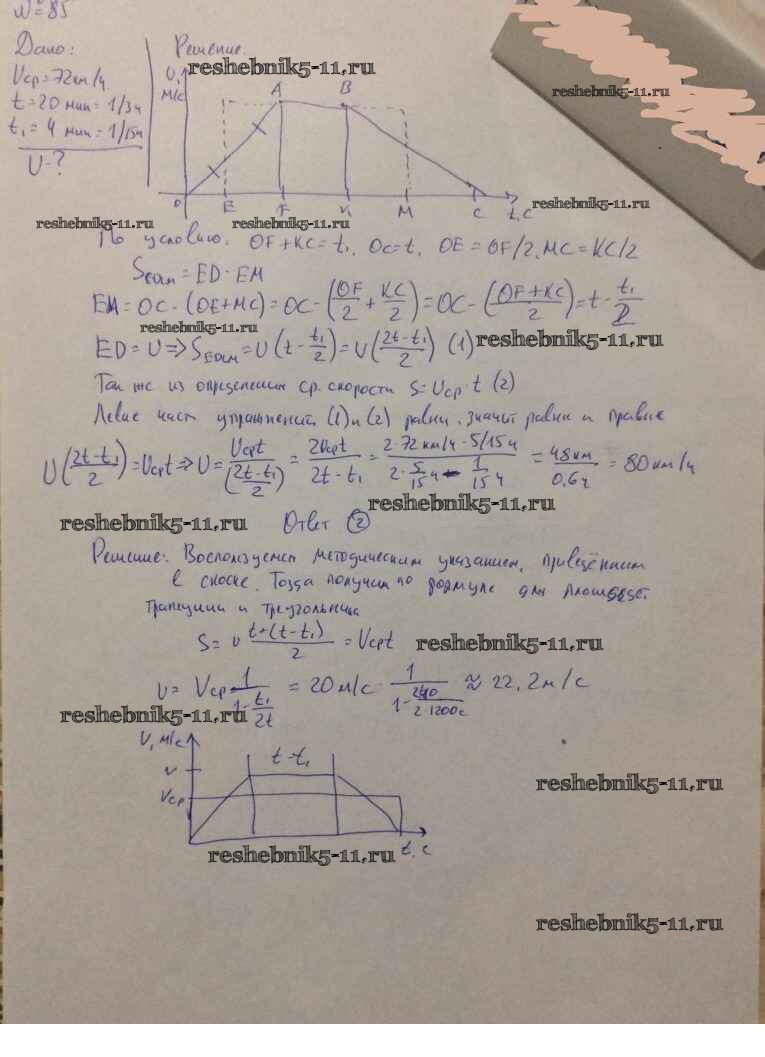 N=85
Дано:
Vср=72км/ч
t=20 мин=1/3ч
t₁=4 мин=1/15ч
U-?
Решение.
reshebnik5-11.ru
U,
м/с
A B
reshebnik5-11.ru
O E F K M C t, c
reshebnik5-11.ru
reshebnik5-11.ru reshebnik5-11.ru
По условию. OF+KC=t₁, OC=t, OE=OF/2, MC=KC/2
S = ED·EM
EM=OC-(OE+MC)=OC-(OF/2+KC/2)=OC-((OF+KC)/2)=t-t₁/2
reshebnik5-11.ru
ED=U=>S =U(t-t₁/2)=U((2t-t₁)/2) (1) reshebnik5-11.ru
Так же из определения ср. скорости S=Uср·t (2)
Левые част (1) и (2) равны. значит равны и правые
U((2t-t₁)/2)=Uсрt=>U=Uсрt/((2t-t₁)/2)=2Uсрt/(2t-t₁)=(2·72км/ч·5/15ч)/(2·5/15ч-1/15ч)=48км/0,6ч=80км/ч
reshebnik5-11.ru
reshebnik5-11.ru Ответ (2)
Решение: Воспользуемся методическим указанием, приведённым
в сноске. Тогда получим по формуле для
трапеции и треугольника
S=υ(t+(t-t₁))/2=Vсрt reshebnik5-11.ru
υ=Vср·1/(1-t₁/2t)=20м/с·1/(1-240/2·1200с)≈22,2м/с
reshebnik5-11.ru
V, м/с
υ
Vср
t-t₁
t, c
reshebnik5-11.ru
reshebnik5-11.ru
reshebnik5-11.ru